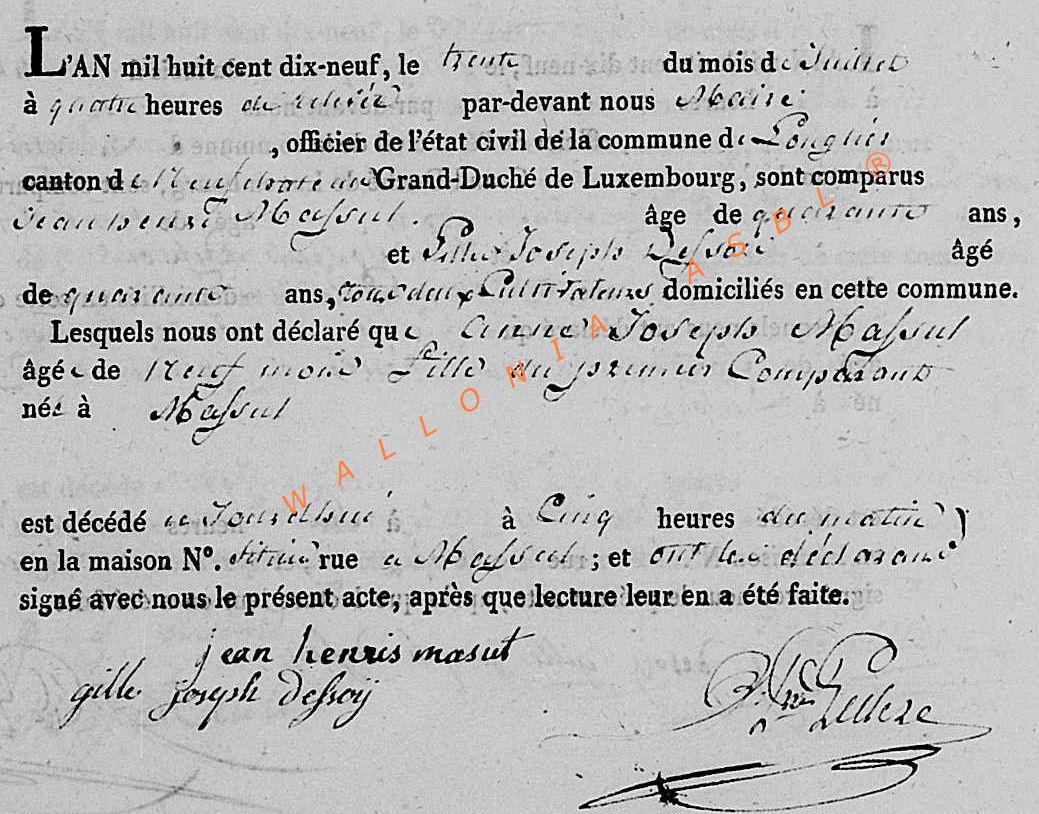 L'AN mil huit cent dix-neuf, le trente du mois de Juillet
à quatre heures de relevée par-devant nous Maire
, officier de l'état civil de la commune de Longlier
canton de Neufchateau Grand-Duché de Luxembourg, sont comparus
Jean henri Massul. âge de quarante ans,
et Gille Joseph Dessoi âgé
de quarante ans, tous deux Cultivateurs domiciliés en cette commune.
Lesquels nous ont déclaré que Anne Joseph Massul
âgée de Neuf mois fille du premier Comparant
née à Massul
est décédé ce Jourdhui à à Cinq heures du matin
en la maison N°. située rue a Massul ; et ont les déclarans
signé avec nous le présent acte, après que lecture leur en a été faite.
jean henris masut
gille joseph dessoÿ
WALLONIA ASBL ®